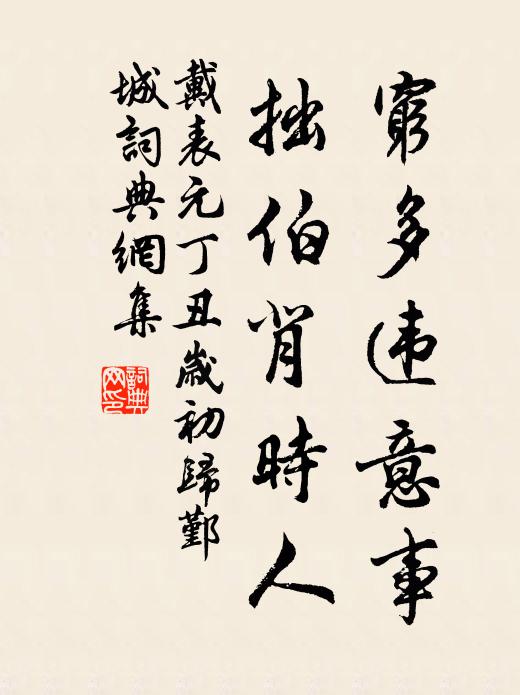 窮多违意事
拙伯背時人
戴表元丁丑歲初歸鄞
城詞典網集
詞典
网印